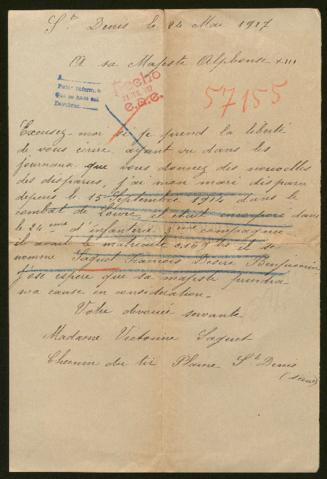 St Denis le 24 Mai 1917
A sa Majesté Alphonse XIII
A
Pedir inform.
que se hace sus
Hecho
e.o.e.
57155
Excusez-moi si je prend la liberté
de vous écrire. ayant vu dans les
journaux que vous donnez des nouvelles
des disparus, j'ai mon mari disparu
depuis le 15 Septembre 1914 dans le
combat de et était incorporé dans
le 24eme d'infanterie 3eme compagnie
il avait le matricule et se
nomme Saquet Francois Désiré Benjamin
j'ose espéré que sa majesté prendra
ma cause en considération.
Votre dévouée servante
Madame Victorine Saquet
Chemin du tir Plaine St Denis
(Seine)